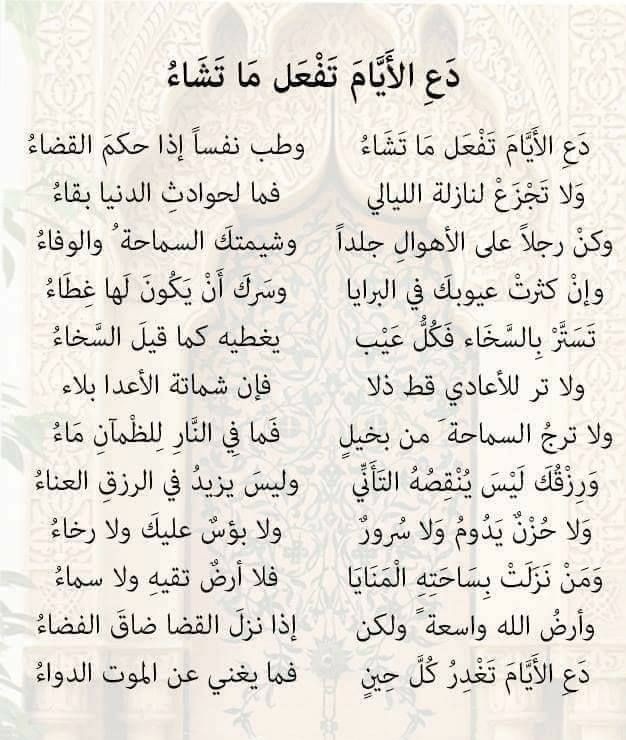 دَعِ الأَيَّامَ تَفْعَل مَا تَشَاءُ
دَعِ الأَيَّامَ تَفْعَل مَا تَشَاءُ وطب نفساً إذا حكمَ القضاءُ
وَلا تَجْزَعْ لنازلة الليالي فما لحوادثِ الدنيا بقاءُ
وكنْ رجلاً على الأهوالِ جلداً وشيمتكَ السماحة ُ والوفاءُ
وإنْ كثرتْ عيوبكَ في البرايا وسَركَ أَنْ يَكُونَ لَها غِطَاءُ
تَسَتَّرْ بِالسَّخَاء فَكُلُّ عَيْب يغطيه كما قيلَ السَّخاءُ
ولا تر للأعادي قط ذلا فإن شماتة الأعدا بلاء
ولا ترجُ السماحة َ من بخيلٍ فَما فِي النَّارِ لِلظْمآنِ مَاءُ
وَرِزْقُكَ لَيْسَ يُنْقِصُهُ التَأَنِّي وليسَ يزيدُ في الرزقِ العناءُ
وَلا حُزْنٌ يَدُومُ وَلا سُرورٌ ولا بؤسٌ عليكَ ولا رخاءُ
وَمَنْ نَزَلَتْ بِسَاحَتِهِ الْمَنَايَا فلا أرضٌ تقيهِ ولا سماءُ
وأرضُ الله واسعة ً ولكن إذا نزلَ القضا ضاقَ الفضاءُ
دَعِ الأَيَّامَ تَغْدِرُ كُلَّ حِينٍ فما يغني عن الموت الدواءُ